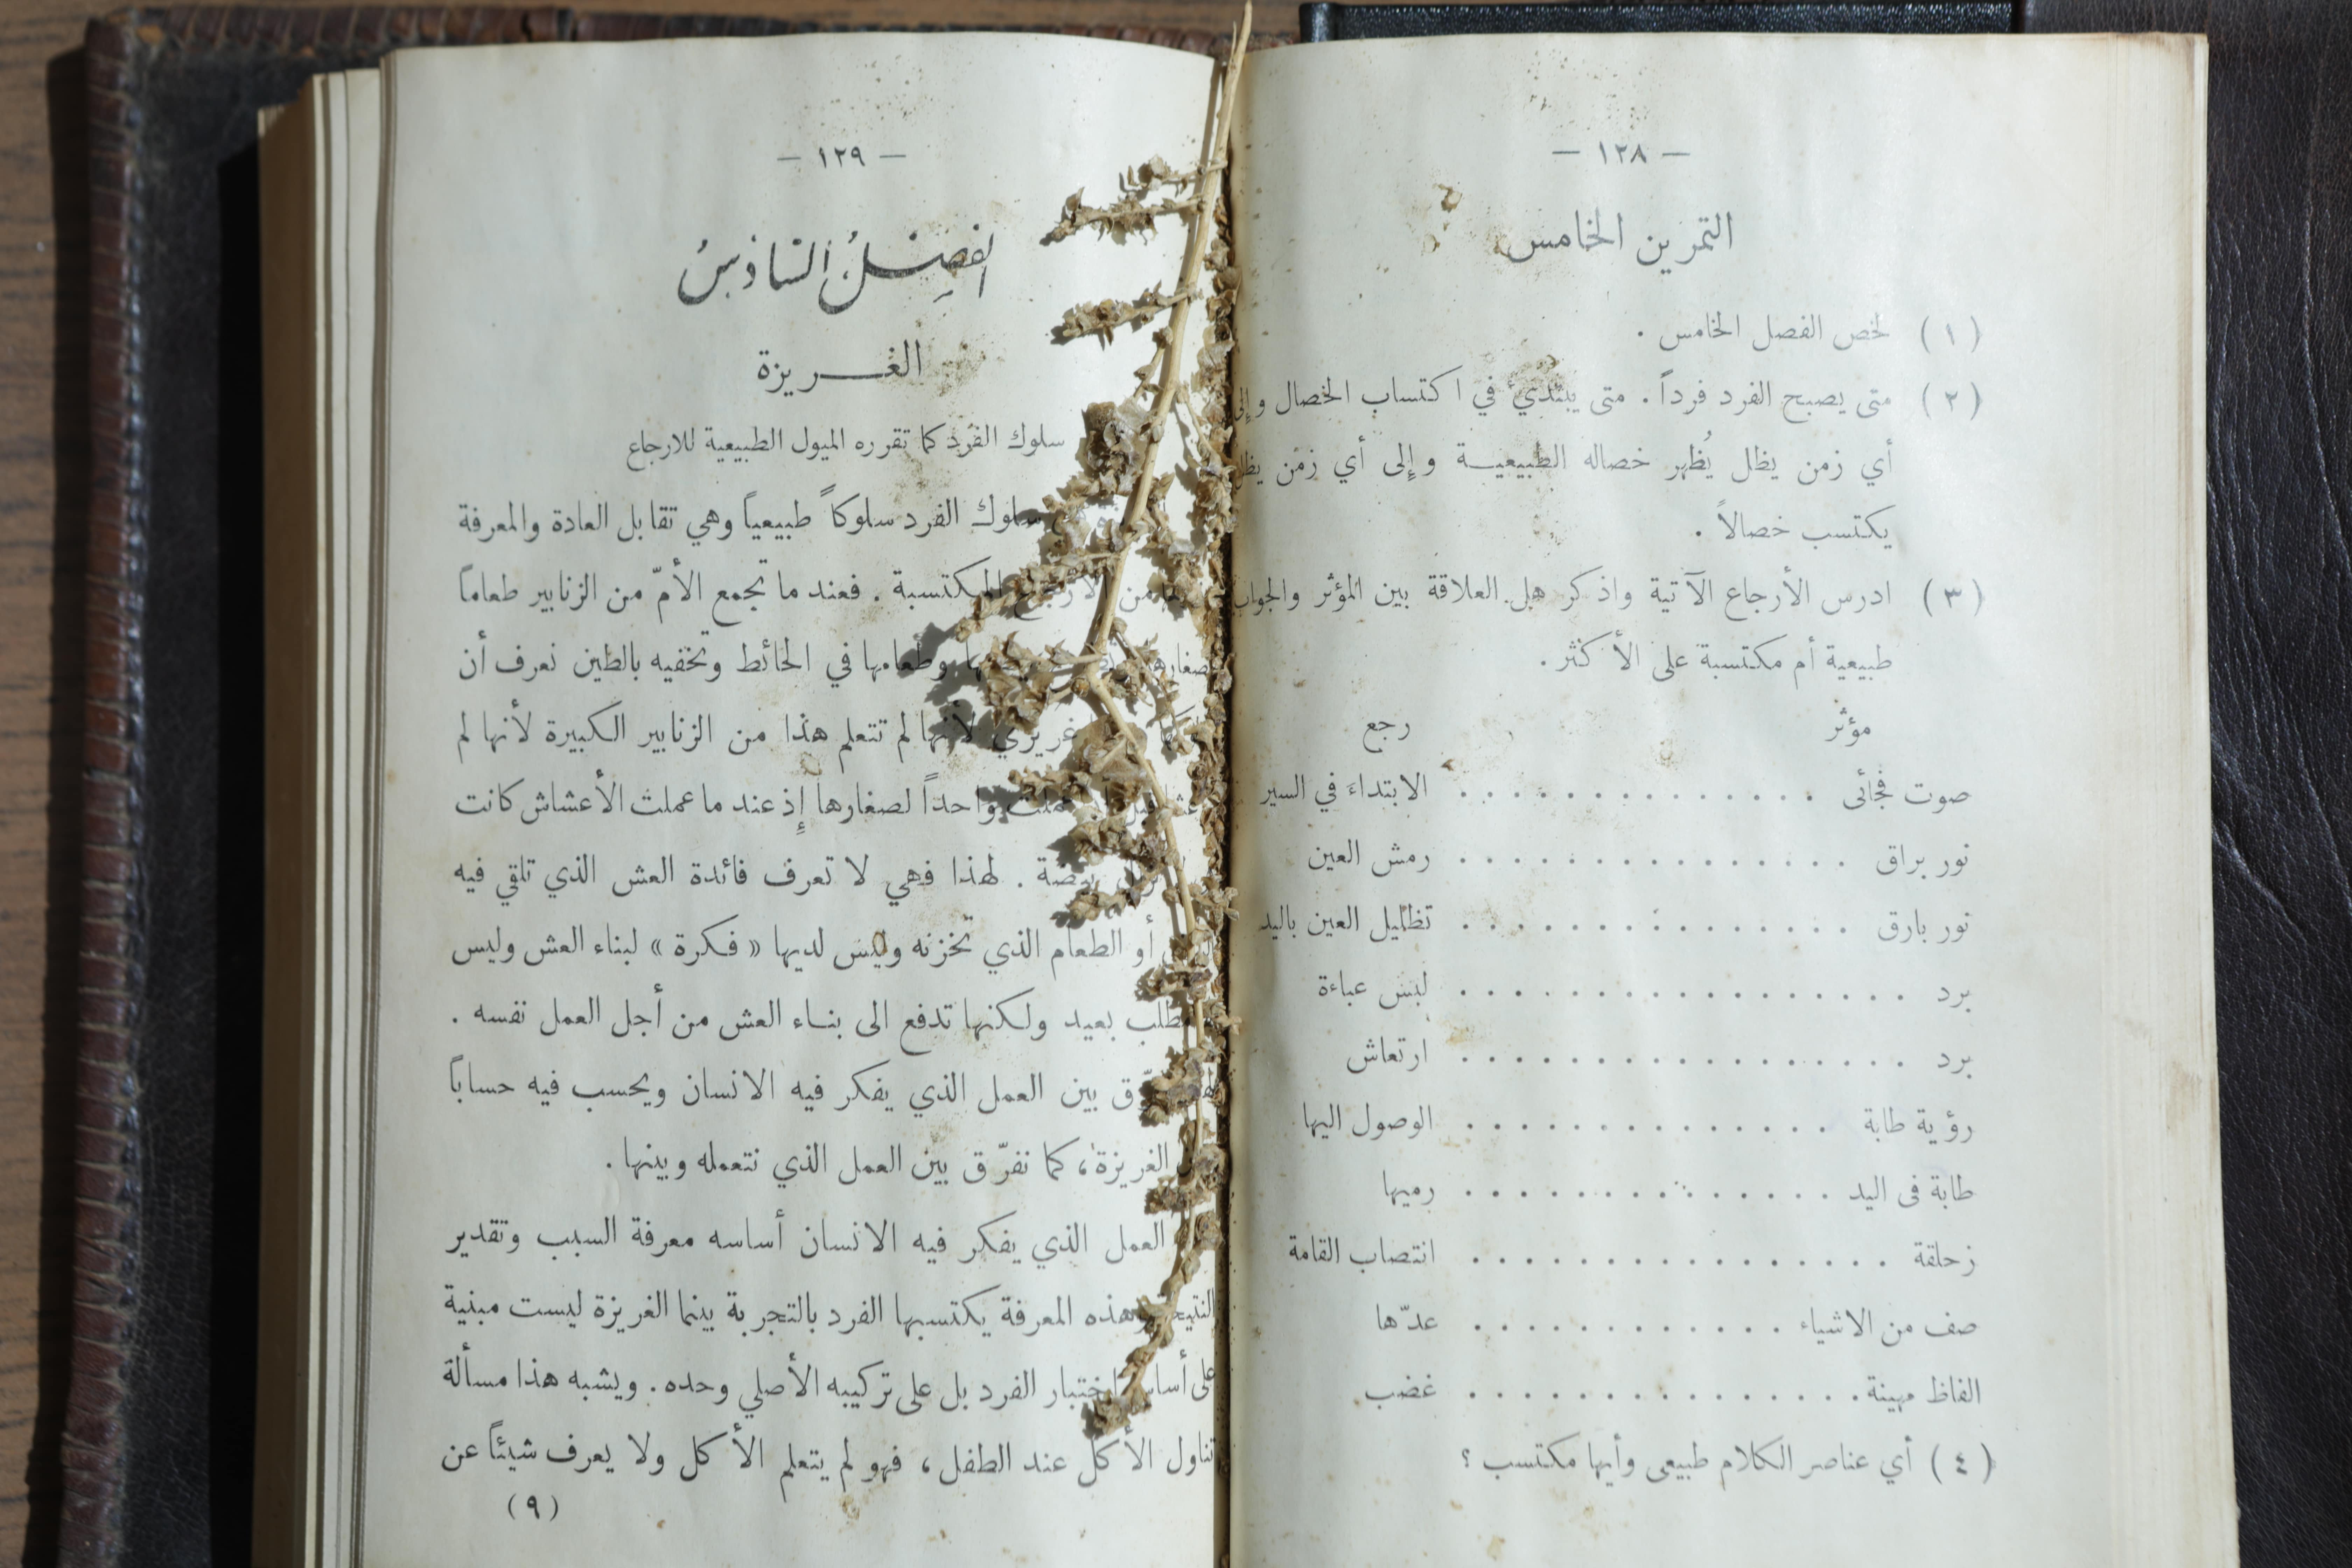 — ١٢٨ —
التمرين الخامس
( ١ ) لخص الفصل الخامس .
( ٢ ) متى يصبح الفرد فرداً . متى يبتدئ في اكتساب الخصال وإلى
أي زمن يظل يُظهر خصاله الطبيعية وإلى أي زمن يظل
يكتسب خصالاً .
( ٣ ) ادرس الأرجاع الآتية واذكر هل العلاقة بين المؤثر والجواب
طبيعية أم مكتسبة على الأكثر .
مؤثر رجع
صوت فجائى . . . . . . . . . . . . . . الابتداء في السير
نور براق . . . . . . . . . . . . . . . رمش العين
نور بارق . . . . . . . . . . . . . . . تظليل العين باليد
برد . . . . . . . . . . . . . . . . . لبس عباءة
برد . . . . . . . . . . . . . . . . . ارتعاش
رؤية طابة . . . . . . . . . . . . . . الوصول اليها
طابة فى اليد . . . . . . . . . . . . . . رميها
زحلقة . . . . . . . . . . . . . . . . انتصاب القامة
صف من الاشياء . . . . . . . . . . . . عدّها
الفاظ مهينة . . . . . . . . . . . . . . . غضب
( ٤ ) أي عناصر الكلام طبيعى وأيها مكتسب ؟
— ١٢٩ —
الفصل السادس
الغريزة
سلوك الفرد كما تقرره الميول الطبيعية للارجاع
سلوك الفرد سلوكاً طبيعياً وهي تقابل العادة والمعرفة
من الأرجاع المكتسبة . فعند ما تجمع الأمّ من الزنابير طعاماً
وطعامها في الحائط وتخفيه بالطين نعرف أن
غريزي لأنها لم تتعلم هذا من الزنابير الكبيرة لأنها لم
عملت واحداً لصغارها إذ عند ما عملت الأعشاش كانت
بيضة . لهذا فهي لا تعرف فائدة العش الذي تلقي فيه
أو الطعام الذي تخزنه وليس لديها « فكرة » لبناء العش وليس
بعيد ولكنها تدفع الى بناء العش من أجل العمل نفسه .
بين العمل الذي يفكر فيه الانسان ويحسب فيه حساباً
الغريزة ، كما نفرّق بين العمل الذي نتعمله وبينها .
العمل الذي يفكر فيه الانسان أساسه معرفة السبب وتقدير
هذه المعرفة يكتسبها الفرد بالتجربة بينما الغريزة ليست مبنية
على أساس اختبار الفرد بل على تركيبه الأصلي وحده . ويشبه هذا مسألة
تناول الأكل عند الطفل ، فهو لم يتعلم الأكل ولا يعرف شيئاً عن
( ٩ )